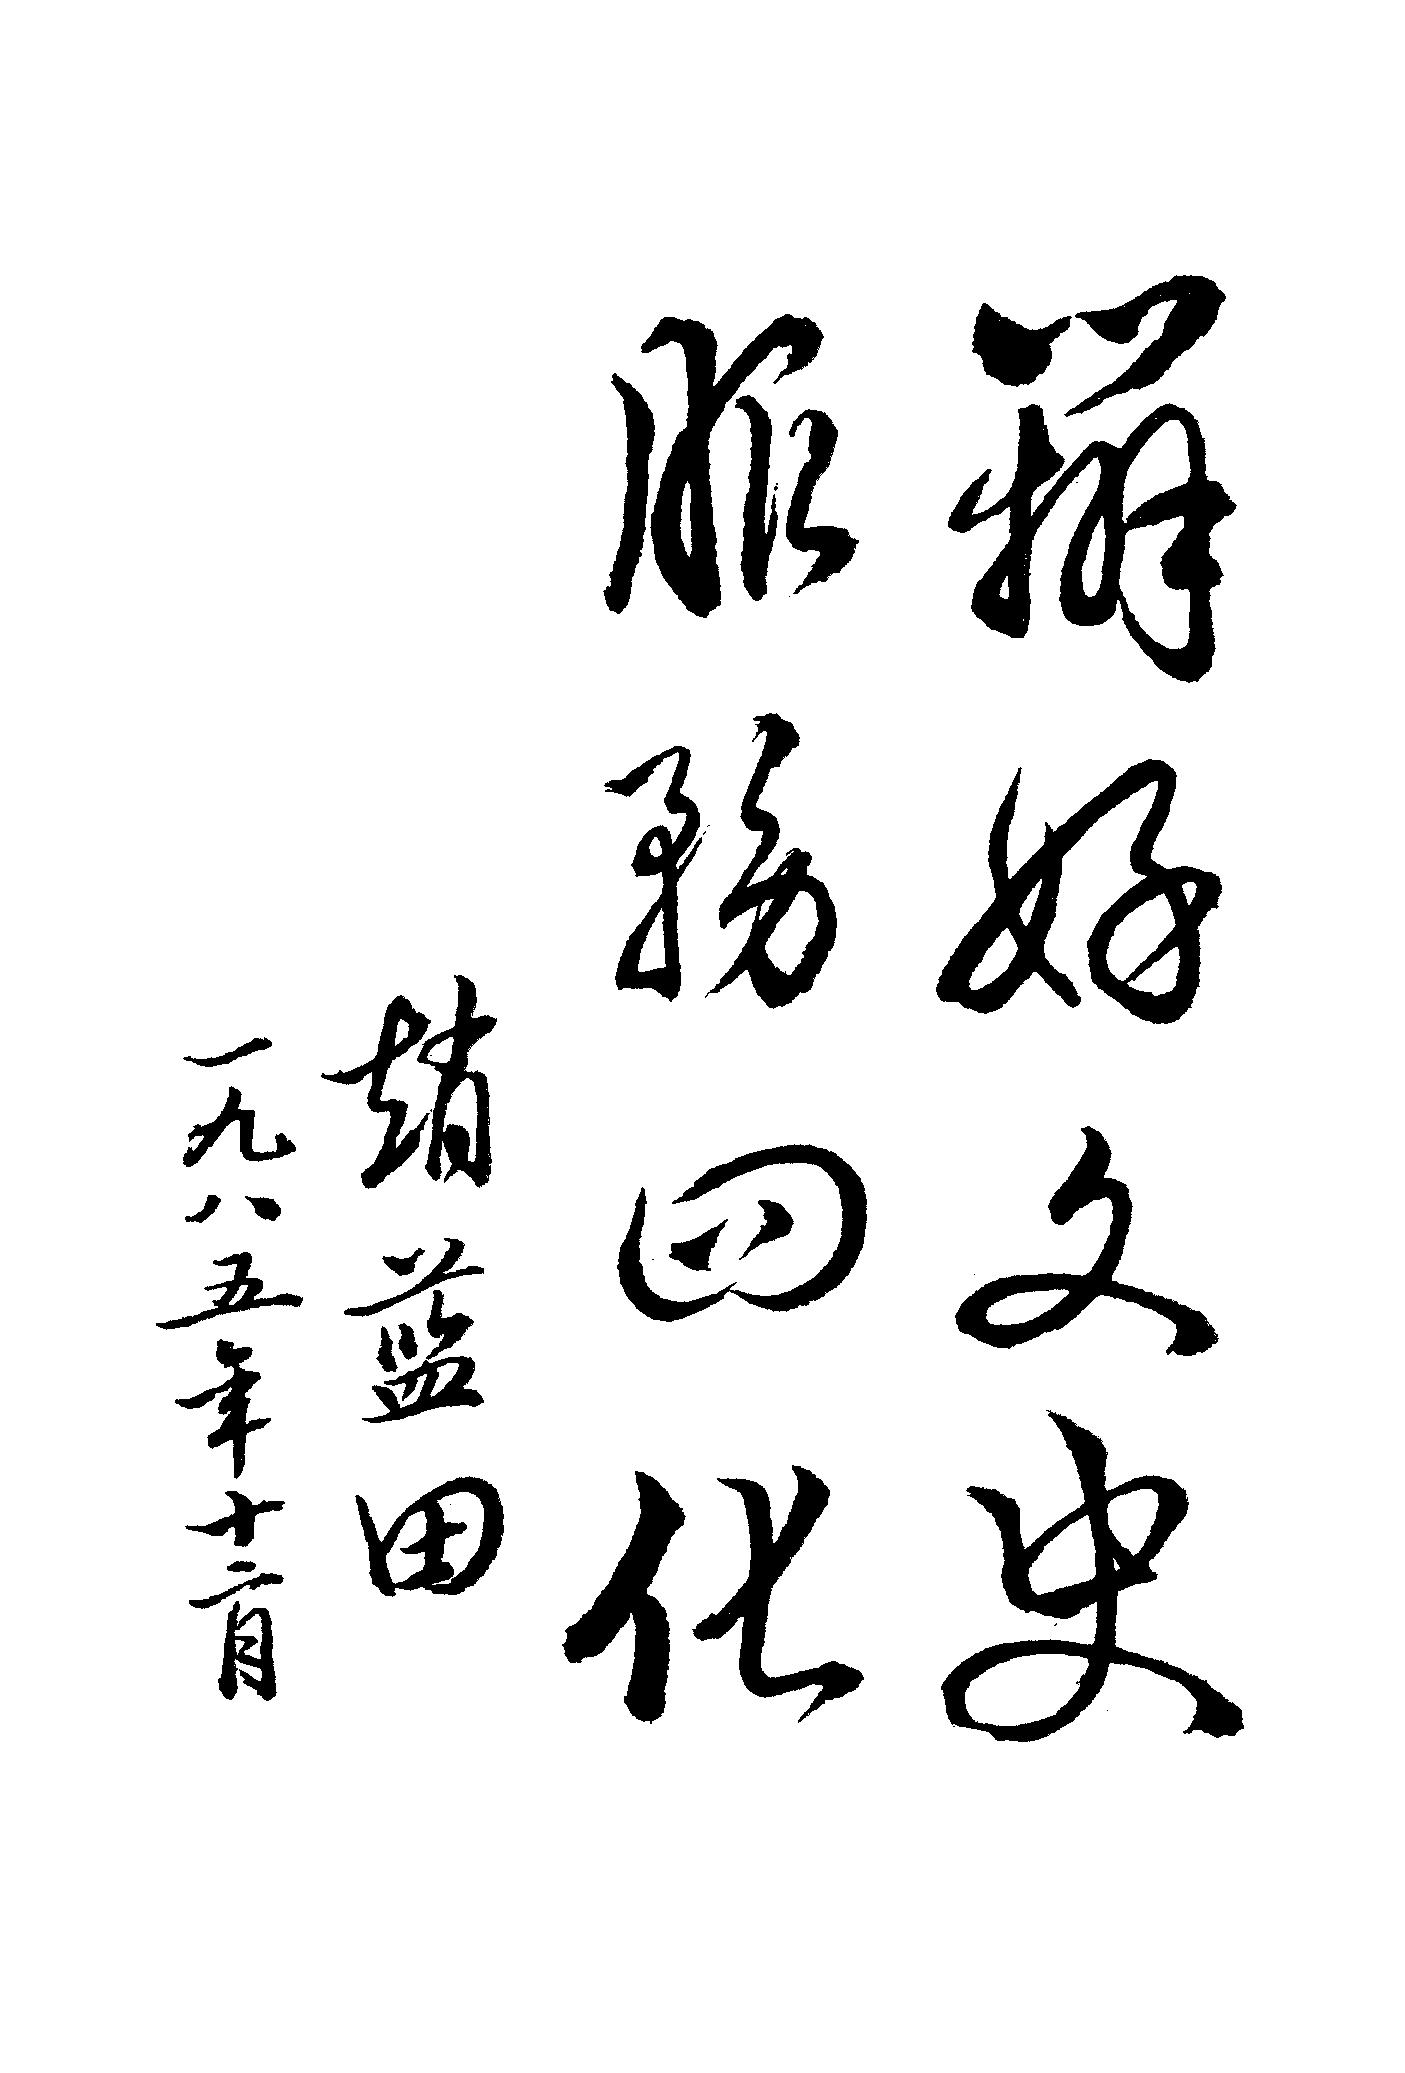 辦好文史
服務四化
趙蓝田
一九八五年十二月